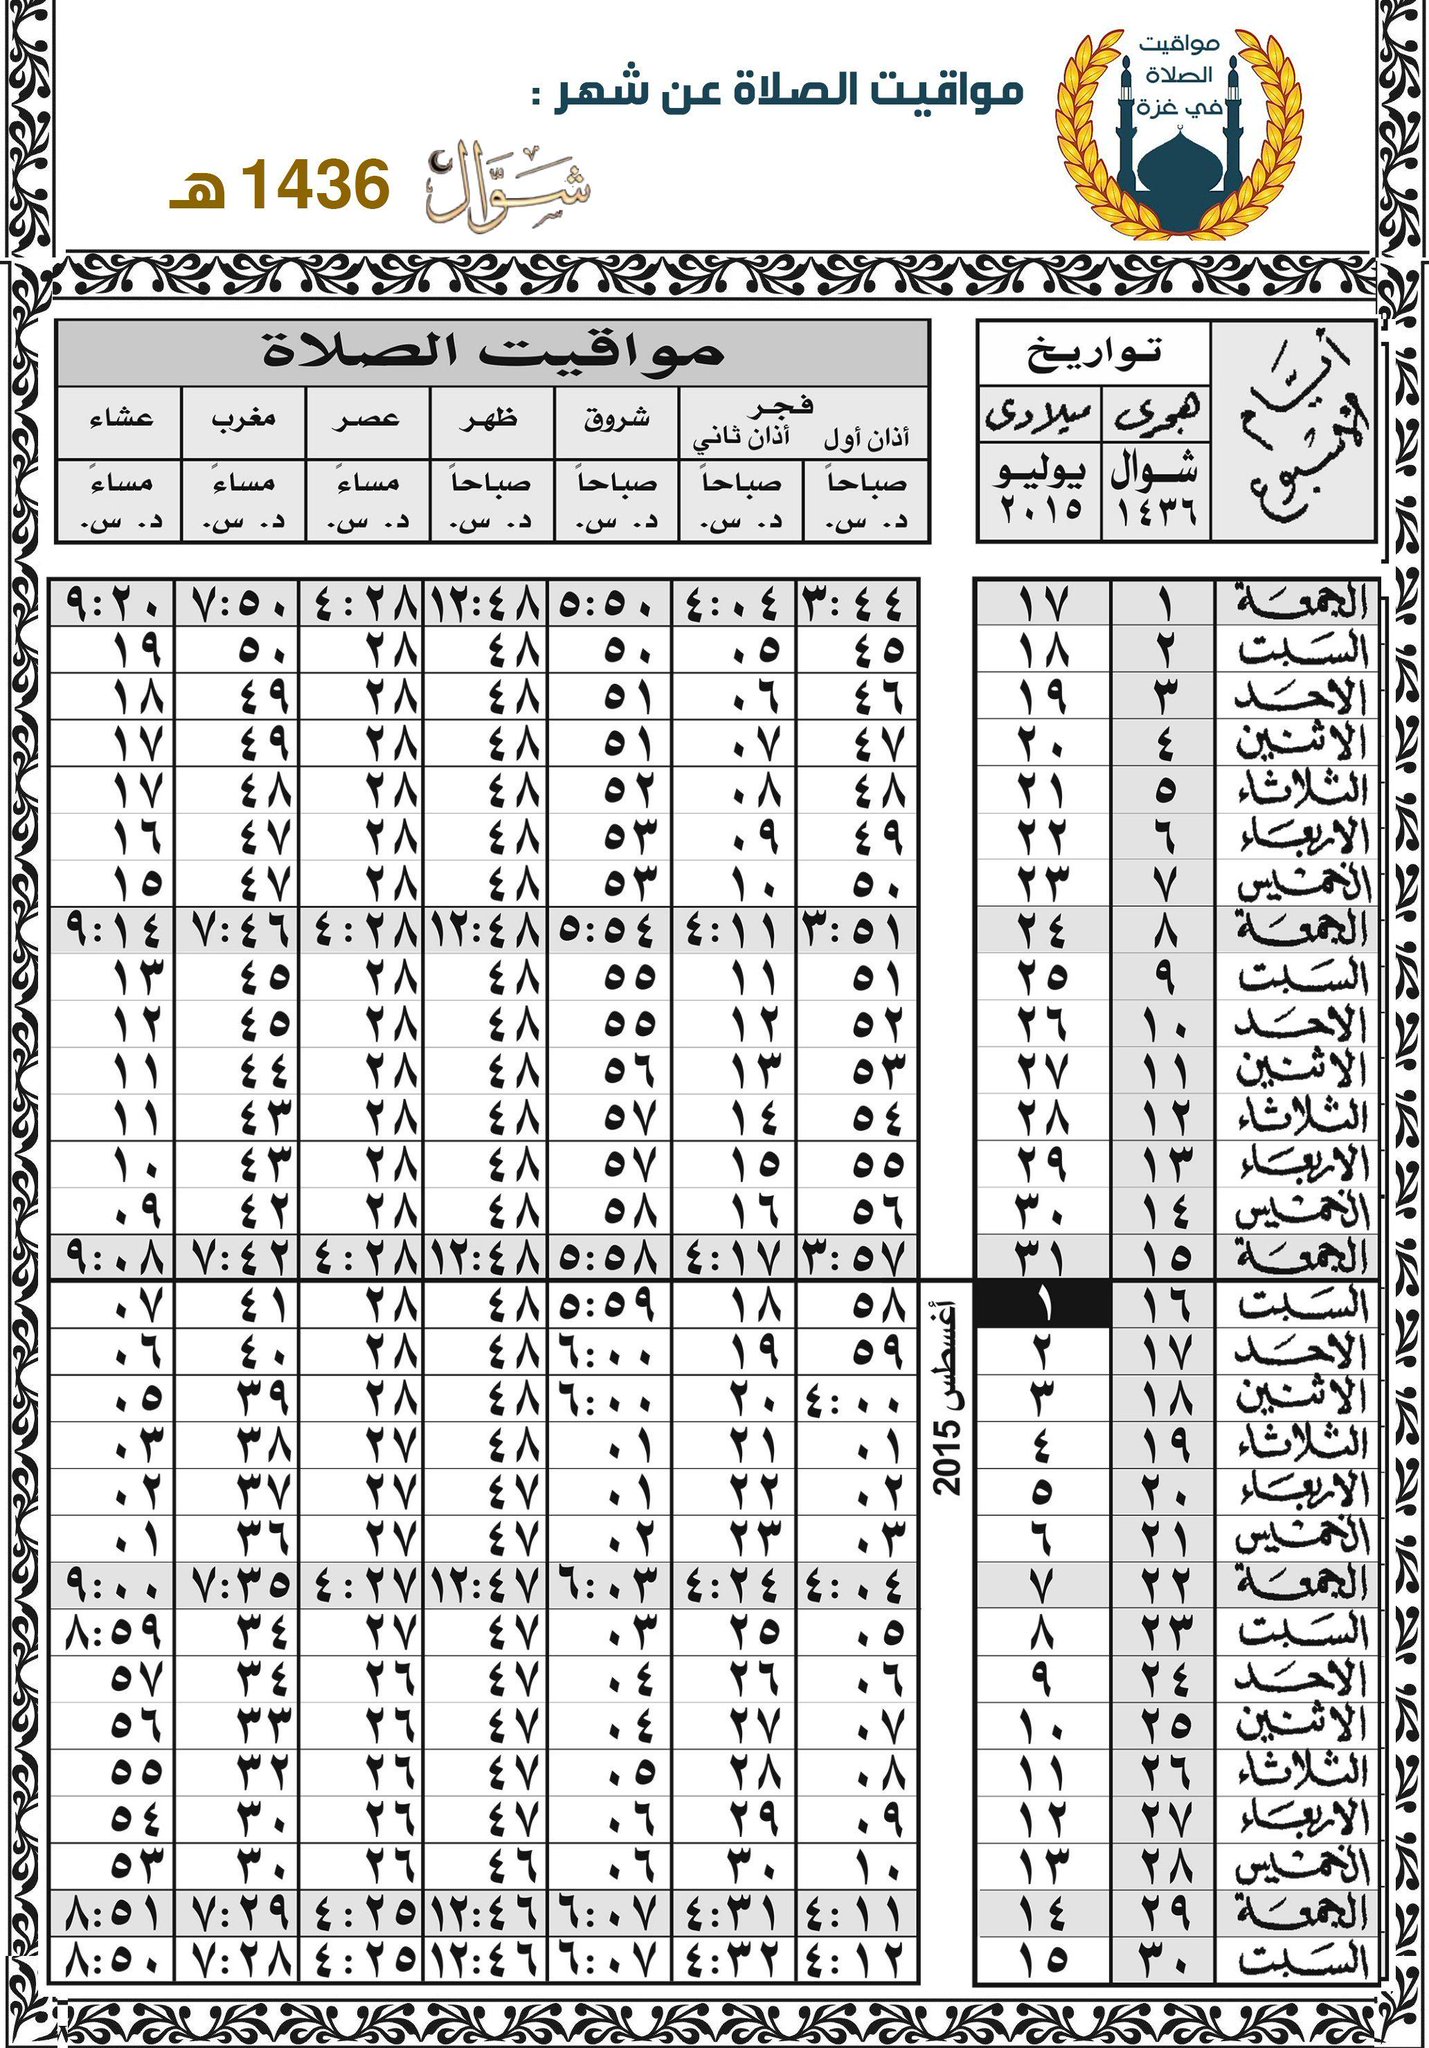 مواقيت
الصلاة
في غزة
مواقيت الصلاة عن شهر :
شَوَّال 1436 هـ
أيام الأسبوع
تواريخ
هجري ميلادي
شوال ١٤٣٦
يوليو ٢٠١٥
مواقيت الصلاة
فجر شروق ظهر عصر مغرب عشاء
أذان أول أذان ثاني
صباحاً صباحاً صباحاً صباحاً مساءً مساءً مساءً
د. س. د. س. د. س. د. س. د. س. د. س. د. س.
الجمعة ١ ١٧ ٣:٤٤ ٤:٠٤ ٥:٥٠ ١٢:٤٨ ٤:٢٨ ٧:٥٠ ٩:٢٠
السبت ٢ ١٨ ٤٥ ٠٥ ٥٠ ٤٨ ٢٨ ٥٠ ١٩
الاحد ٣ ١٩ ٤٦ ٠٦ ٥١ ٤٨ ٢٨ ٤٩ ١٨
الاثنين ٤ ٢٠ ٤٧ ٠٧ ٥١ ٤٨ ٢٨ ٤٩ ١٧
الثلاثاء ٥ ٢١ ٤٨ ٠٨ ٥٢ ٤٨ ٢٨ ٤٨ ١٧
الاربعاء ٦ ٢٢ ٤٩ ٠٩ ٥٣ ٤٨ ٢٨ ٤٧ ١٦
الخميس ٧ ٢٣ ٥٠ ١٠ ٥٣ ٤٨ ٢٨ ٤٧ ١٥
الجمعة ٨ ٢٤ ٣:٥١ ٤:١١ ٥:٥٤ ١٢:٤٨ ٤:٢٨ ٧:٤٦ ٩:١٤
السبت ٩ ٢٥ ٥١ ١١ ٥٥ ٤٨ ٢٨ ٤٥ ١٣
الاحد ١٠ ٢٦ ٥٢ ١٢ ٥٥ ٤٨ ٢٨ ٤٥ ١٢
الاثنين ١١ ٢٧ ٥٣ ١٣ ٥٦ ٤٨ ٢٨ ٤٤ ١١
الثلاثاء ١٢ ٢٨ ٥٤ ١٤ ٥٧ ٤٨ ٢٨ ٤٣ ١١
الاربعاء ١٣ ٢٩ ٥٥ ١٥ ٥٧ ٤٨ ٢٨ ٤٣ ١٠
الخميس ١٤ ٣٠ ٥٦ ١٦ ٥٨ ٤٨ ٢٨ ٤٢ ٠٩
الجمعة ١٥ ٣١ ٣:٥٧ ٤:١٧ ٥:٥٨ ١٢:٤٨ ٤:٢٨ ٧:٤٢ ٩:٠٨
أغسطس 2015
السبت ١٦ ١ ٥٨ ١٨ ٥:٥٩ ٤٨ ٢٨ ٤١ ٠٧
الاحد ١٧ ٢ ٥٩ ١٩ ٦:٠٠ ٤٨ ٢٨ ٤٠ ٠٦
الاثنين ١٨ ٣ ٤:٠٠ ٢٠ ٦:٠٠ ٤٨ ٢٨ ٣٩ ٠٥
الثلاثاء ١٩ ٤ ٠١ ٢١ ٠١ ٤٨ ٢٧ ٣٨ ٠٣
الاربعاء ٢٠ ٥ ٠٢ ٢٢ ٠١ ٤٧ ٢٧ ٣٧ ٠٢
الخميس ٢١ ٦ ٠٣ ٢٣ ٠٢ ٤٧ ٢٧ ٣٦ ٠١
الجمعة ٢٢ ٧ ٤:٠٤ ٤:٢٤ ٦:٠٣ ١٢:٤٧ ٤:٢٧ ٧:٣٥ ٩:٠٠
السبت ٢٣ ٨ ٠٥ ٢٥ ٠٣ ٤٧ ٢٧ ٣٤ ٨:٥٩
الاحد ٢٤ ٩ ٠٦ ٢٦ ٠٤ ٤٧ ٢٦ ٣٤ ٥٧
الاثنين ٢٥ ١٠ ٠٧ ٢٧ ٠٤ ٤٧ ٢٦ ٣٣ ٥٦
الثلاثاء ٢٦ ١١ ٠٨ ٢٨ ٠٥ ٤٧ ٢٦ ٣٢ ٥٥
الاربعاء ٢٧ ١٢ ٠٩ ٢٩ ٠٦ ٤٧ ٢٦ ٣٠ ٥٤
الخميس ٢٨ ١٣ ١٠ ٣٠ ٠٦ ٤٦ ٢٦ ٣٠ ٥٣
الجمعة ٢٩ ١٤ ٤:١١ ٤:٣١ ٦:٠٧ ١٢:٤٦ ٤:٢٥ ٧:٢٩ ٨:٥١
السبت ٣٠ ١٥ ٤:١٢ ٤:٣٢ ٦:٠٧ ١٢:٤٦ ٤:٢٥ ٧:٢٨ ٨:٥٠